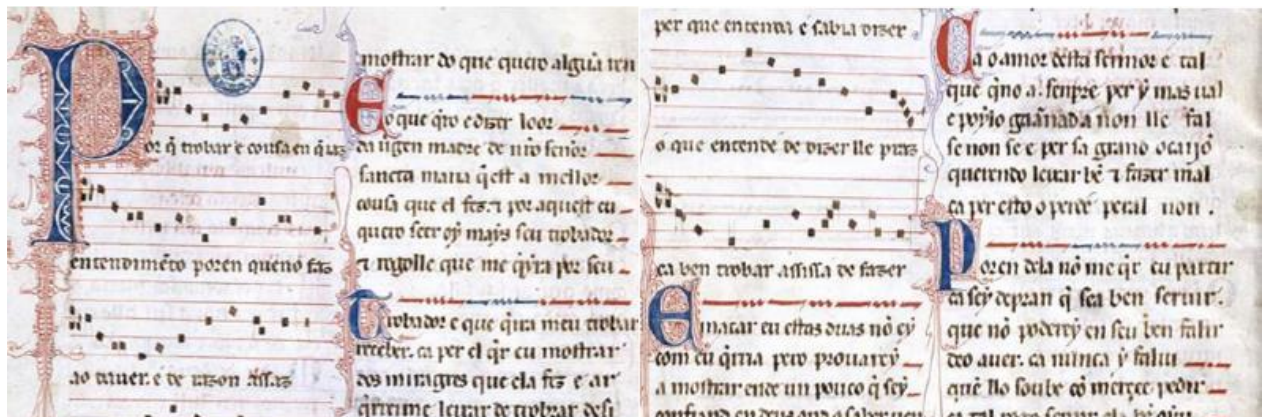 Por q̃ trobar e cousa en q̃ iaz
entendimẽto poren quenõ faz
ao dauer. e de razon assaz
mostrar do que quero algũa ren
E o que q̃ro e dizer loor
da uirgen madre de nr̃o señor
sancta maria q̃ est a mellor
cousa que el fez. ⁊ por aquest eu
quero seer oy mays seu trobador
⁊ rogolle que me q̃ira por seu
Trobador e que q̃ira meu trobar
receber. ca per el q̃r eu mostrar
dos miragres que ela fez e ar
querreime leixar de trobar desi
per que entenda e sabia dizer
o que entende de dizer lle praz
ca ben trobar assissa de fazer
E macar eu estas duas nõ ey
com eu q̃rria pero prouarey
a mostrar ende un pouco q̃ sey
confiand en deus ond o saber uen
Ca o amor desta sennor e tal
que q̃no a. senpre per y mas ual
e poylo gaannada non lle fal
se non se e per sa grand ocaijõ
querendo leixar bẽ ⁊ fazer mal
ca per esto o perde per al non.
Poren dela nõ me q̃r eu partir
ca sey de pran q̃ sea ben seruir.
que nõ poderey en seu ben falir
deo auer. ca nunca y faliu
quẽ llo soube cõ merçee pedir